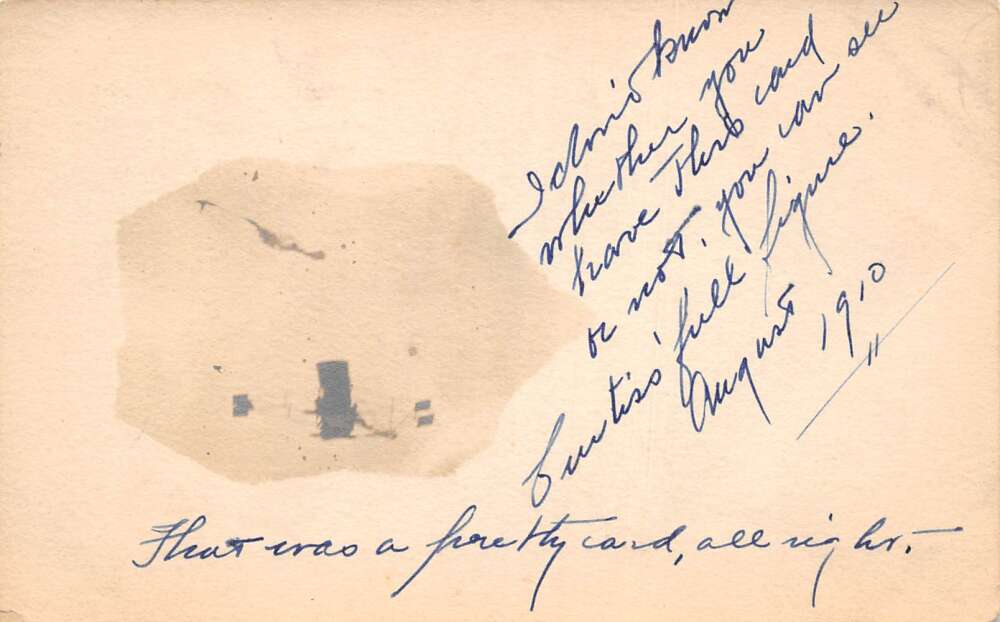 I don't know
whether you
have this card
or not, you can see
Curtiss' full figure.
August 1910
"
That was a pretty card, all right.